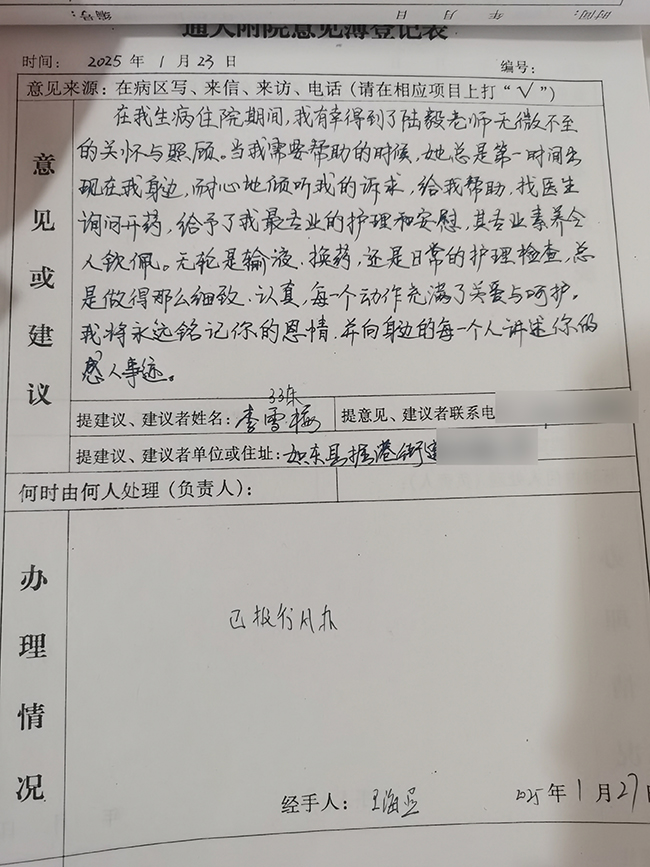 时间： 年 月 日 编号：
通大附院意见簿登记表
时间： 2025 年 1 月 23 日 编号：
意见来源：在病区写、来信、来访、电话（请在相应项目上打“√”）
意见或建议
在我生病住院期间，我有幸得到了陆毅老师无微不至
的关怀与照顾。当我需要帮助的时候，她总是第一时间出
现在我身边，耐心地倾听我的诉求，给我帮助，找医生
询问开药，给予了我最专业的护理和安慰，其专业素养令
人钦佩。无轮是输液、换药，还是日常的护理检查，总
是做得那么细致、认真，每一个动作充满了关爱与呵护。
我将永远铭记你的恩情，并向身边的每一个人讲述你的
感人事迹。
33床
提建议、建议者姓名：李雪梅 提意见、建议者联系电
提建议、建议者单位或住址：如东县掘港街道
何时由何人处理（负责人）：
办理情况
已报行风办
经手人： 王海 2025 年 1 月 27 日